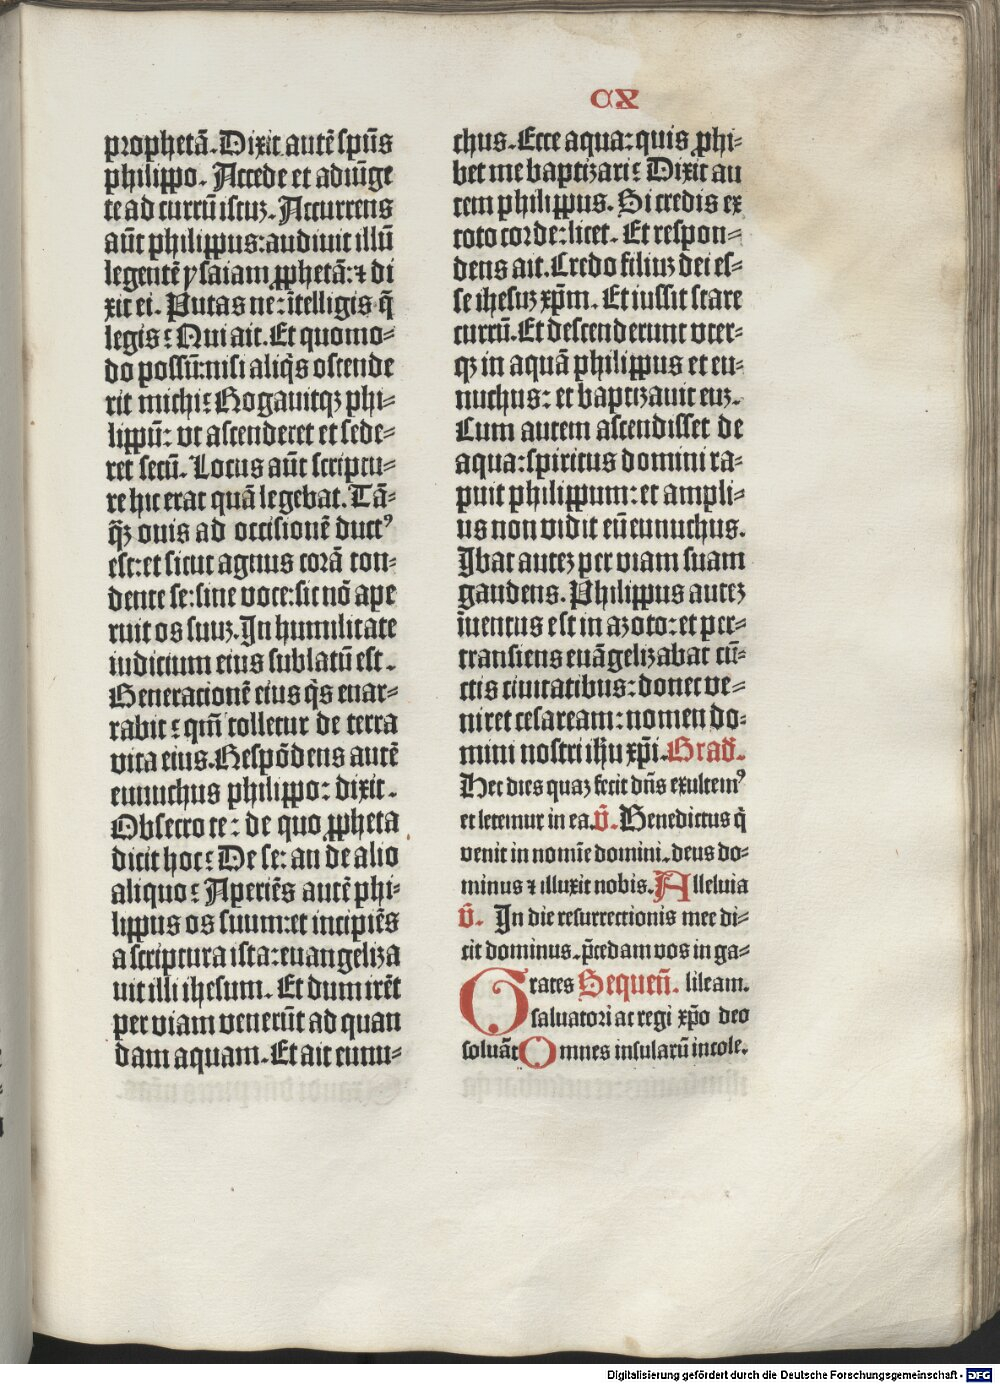 CX
prophetā. Dixit autē spūs
philippo. Accede et adiūge
te ad currū istuʒ. Accurrens
aūt philippus: audiuit illū
legentē ysaiam ꝓphetā: ⁊ di
xit ei. Putas ne: ītelligis q̄
legis: Qui ait. Et quomo⸗
do possū: nisi aliq̄s ostende
rit michi: Rogauitqʒ phi⸗
lippū: vt ascenderet et sede⸗
ret secū. Locus aūt scriptu⸗
re hic erat quā legebat. Tā⸗
q̄ʒ ouis ad occisionē duct⁹
est: et sicut agnus corā ton⸗
dente se: sine voce: sic nō ape
ruit os suuʒ. In humilitate
iudicium eius sublatū est.
Generacionē eius q̄s enar⸗
rabit: qm̄ tolletur de terra
vita eius. Respōdens autē
eunuchus philippo: dixit.
Obsecro te: de quo ꝓpheta
dicit hoc: De se: an de alio
aliquo: Aperiēs autē phi⸗
lippus os suum: et incipiēs
a scriptura ista: euangeliza
uit illi ihesum. Et dum irēt
per viam venerūt ad quan
dam aquam. Et ait eunu⸗
chus. Ecce aqua: quis ꝓhi⸗
bet me baptizari: Dixit au
tem philippus. Si credis ex
toto corde: licet. Et respon⸗
dens ait. Credo filiuʒ dei es⸗
se ihesuʒ xp̄m. Et iussit stare
currū. Et descenderunt vter⸗
qʒ in aquā philippus et eu⸗
nuchus: et baptizauit euʒ.
Cum autem ascendisset de
aqua: spiritus domini ra⸗
puit philippum: et ampli⸗
us non vidit eū eunuchus.
Ibat auteʒ per viam suam
gaudens. Philippus auteʒ
īuentus est in azoto: et per⸗
transiens euāgelizabat cū⸗
ctis ciuitatibus: donec ve⸗
niret cesaream: nomen do⸗
mini nostri ih̄u xp̄i. Grad̄.
Hec dies quaʒ fecit dn̄s exultem⁹
et letemur in ea. v̄. Benedictus q̄
venit in nomīe domini. deus do⸗
minus ⁊ illuxit nobis. Alleluia
v̄. In die resurrectionis mee di⸗
cit dominus. p̄cedam vos in ga⸗
Grates Sequen̄. lileam.
saluatori ac regi xp̄o deo
soluāt Omnes insularū incole.
Digitalisierung gefördert durch die Deutsche Forschungsgemeinschaft - DFG